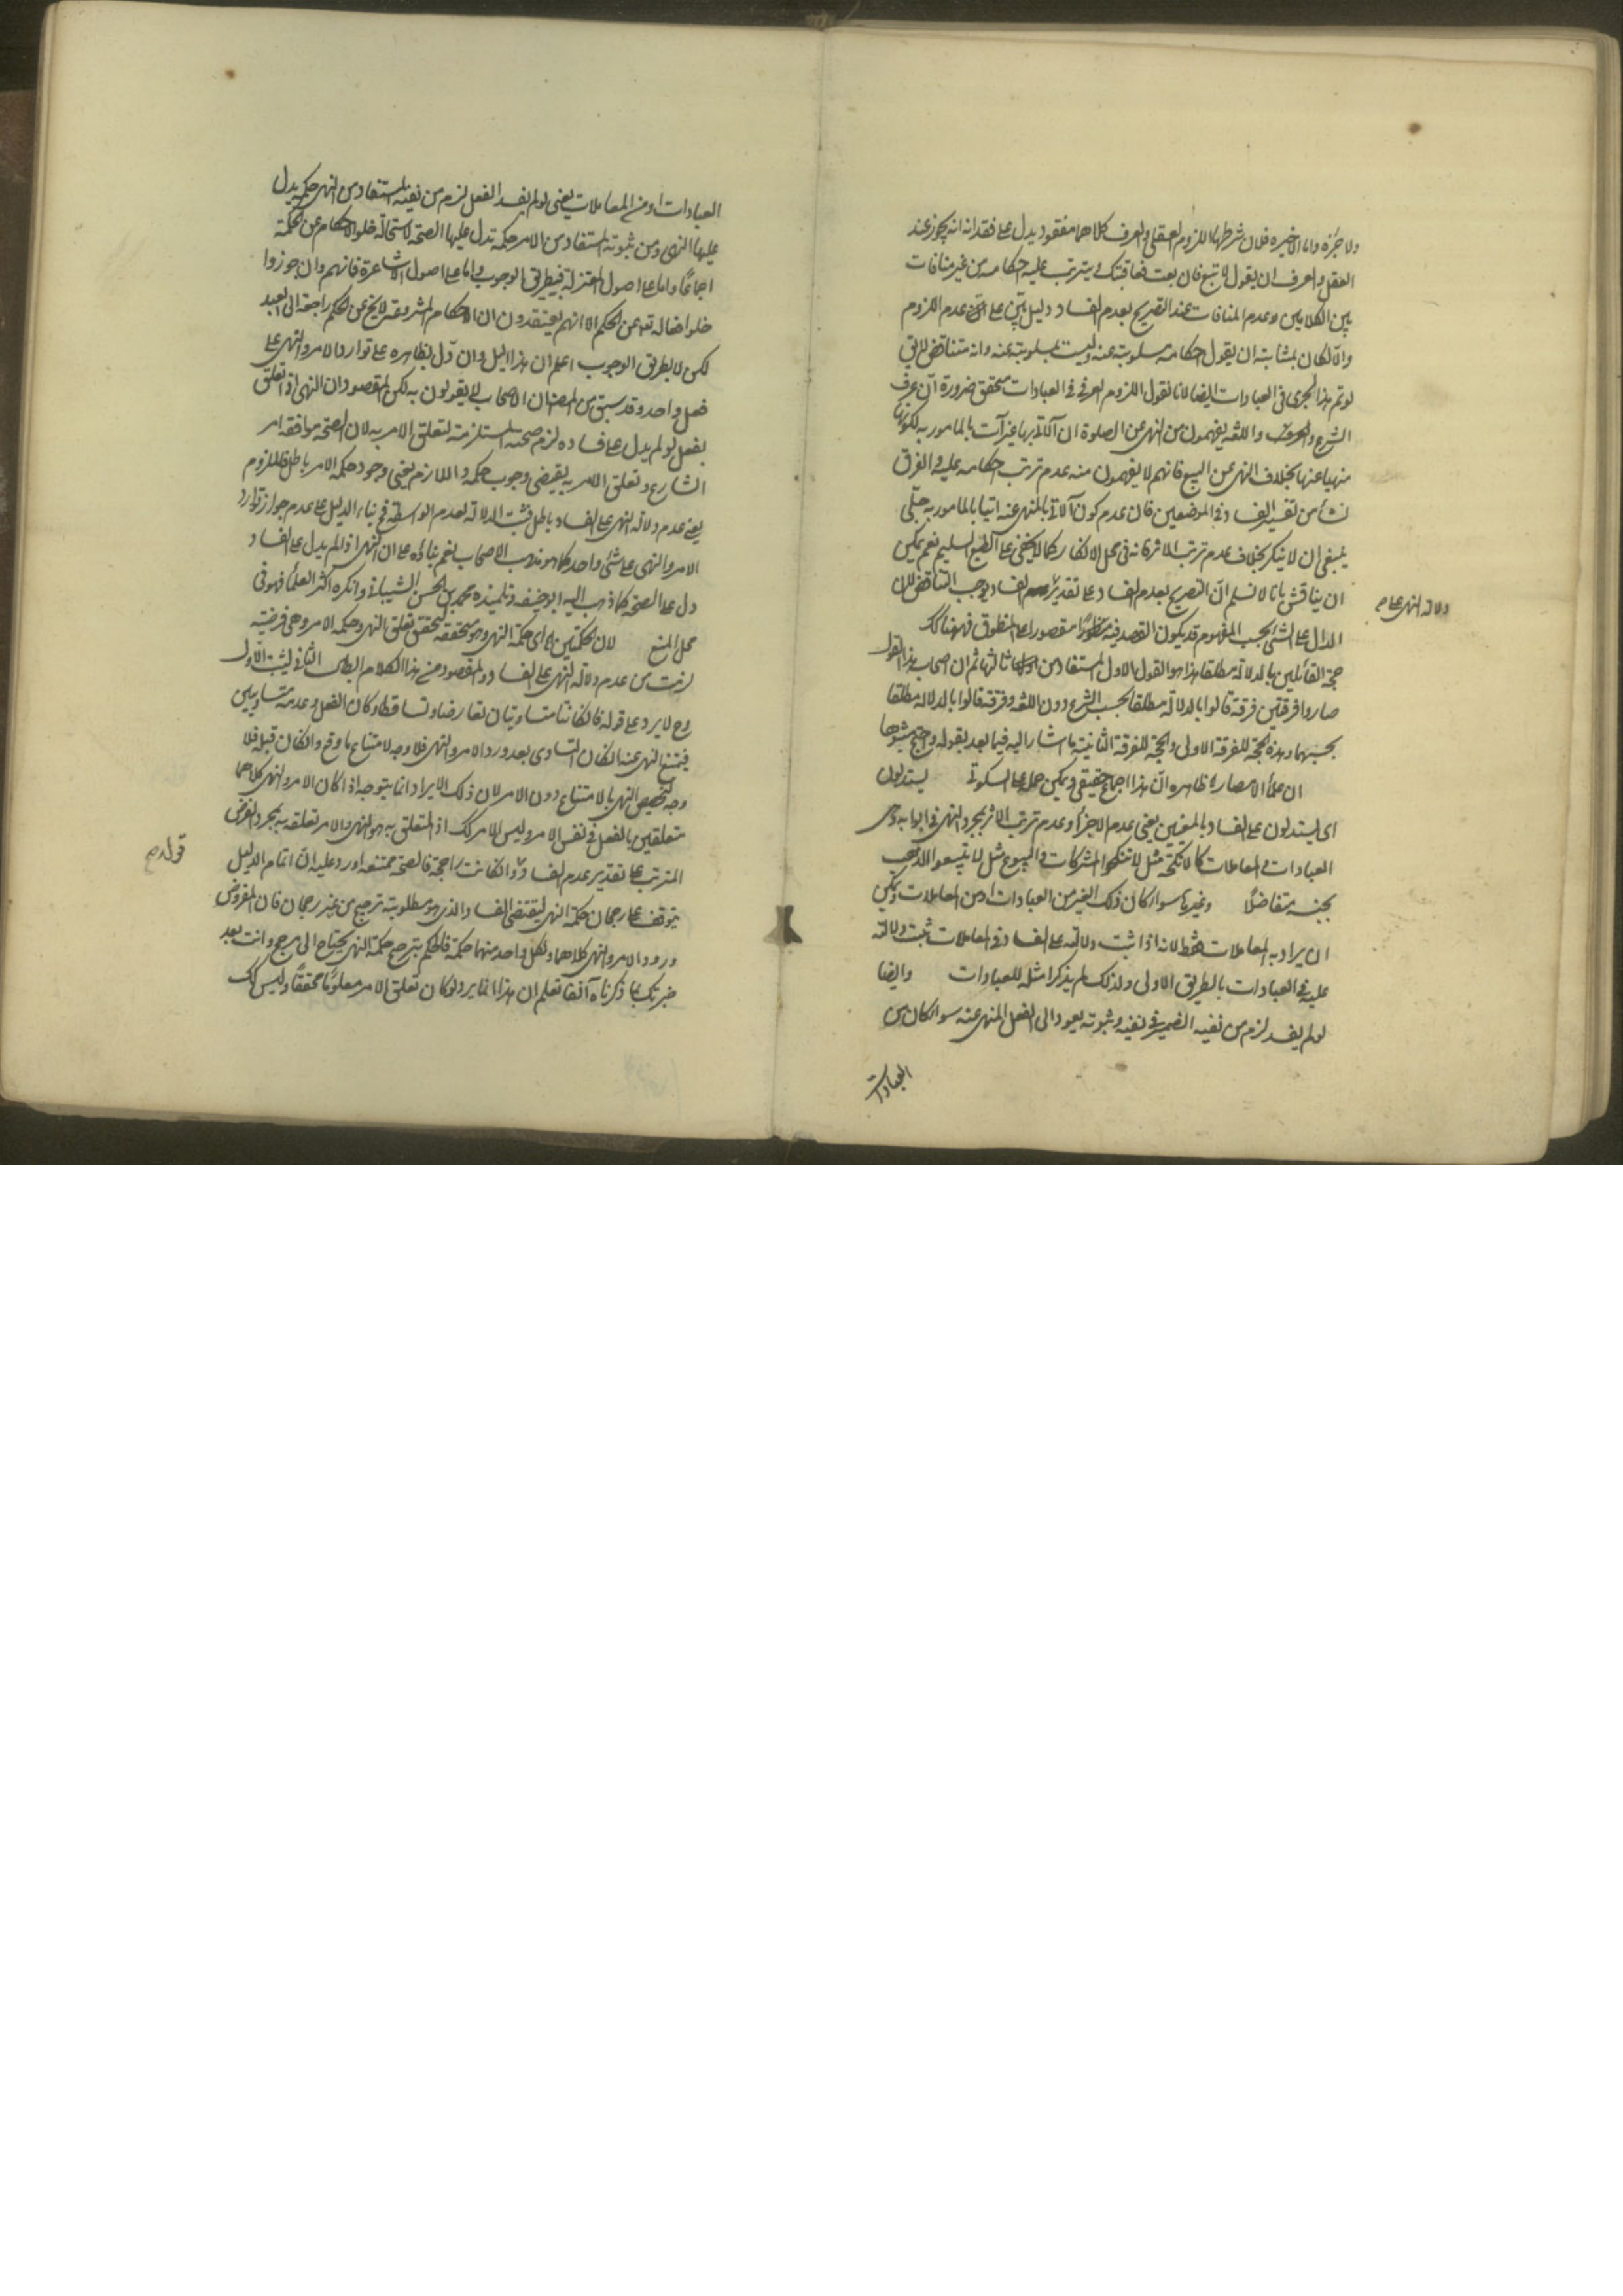 ولا جزءه واما الاخيرة فلان شرطها اللزوم العقلى والعرف كلاهما مفقود يدل على فقدانه انه يجوز عند
العقل والعرف ان يقول لا تبع فان بعت فعاقبتك يترتب عليه احكامه من غير منافات
بين الكلامين وعدم المنافات عند التصريح بعدم الفساد دليل بين على عدم اللزوم
والا لكان بمثابته ان يقول احكامه مسلوبة عنه وليست بمسلوبة عنه وانه متناقض لا يق
لو تم هذا لجرى فى العبادات ايضا لانا نقول اللزوم العرفى فى العبادات متحقق ضرورة ان عرف
الشرع واللغه يفهمون من النهى عن الصلوة ان الآتى بها غير آت بالمامور به لكونها
منهيا عنها بخلاف النهى عن البيع فانهم لا يفهمون منه عدم ترتب احكامه عليه والفرق
نشأ من تفسير الفساد فى الموضعين فان عدم كون الآتى بالمنهى عنه اتيا بالمامور به جلّى
ينبغى ان لا ينكر بخلاف عدم ترتب الاثر فانه فى محل الانكار كما لا يخفى على الطبع السليم نعم يمكن
ان يناقش بانا لا نسلم ان التصريح بعدم الفساد على تقدير الفساد يوجب التناقض لان
دلالة النهى على
الدال على الشئ بحسب المفهوم قد يكون القصد فيه مقصورا على المنطوق فههنا كك
حجة القائلين بالدلالة مطلقا هذا هو القول الاول المستفاد من ثالثها ثم ان اصحاب هذا القول
صاروا فرقتين فرقة قالوا بالدلالة مطلقا بحسب الشرع دون اللغه وفرقة قالوا بالدلالة مطلقا
بحسبهما وهذه الحجة للفرقة الاولى والحجة للفرقة الثانية ما اشار اليه فيما بعد بقوله واحتج مثبتوها
ان علماء الامصار ظاهره ان هذا اجماع حقيقى ويمكن حمله على السكوتى يستدلون
اى يستدلون على الفساد بالمعنيين يعنى عدم الاجزاء وعدم ترتب الاثر بمجرد النهى فى ابوابه وهى
العبادات والمعاملات كالانكحة مثل لا تنكحوا المشركات والبيوع مثل لا تبيعوا الذهب
بجنسه متفاضلًا وغيرها سواء كان ذلك الغير من العبادات او من المعاملات ويمكن
ان يراد به المعاملات فقط لانه اذا ثبت دلالته على الفساد فى المعاملات ثبت دلالته
عليه فى العبادات بالطريق الاولى ولذلك لم يذكر امثله للعبادات وايضا
لو لم يفسد لزم من نفيه الضمير فى نفيه وثبوته يعود الى الفعل المنهى عنه سواء كان من
العبادات
العبادات او من المعاملات يعنى لو لم يفسد الفعل لزم من نفيه المستفاد من النهى حكمة يدل
عليها النهى ومن ثبوته المستفاد من الامر حكمة تدل عليها الصحة لاستحالة خلو الاحكام عن الحكمة
اجماعًا واما على اصول المعتزلة فبطريق الوجوب واما على اصول الاشاعرة فانهم وان جوزوا
خلو افعاله تع عن الحكم الا انهم يعتقدون ان الاحكام المشروعة لا يخ عن الحكم راجعة الى العبد
لكن لا بطريق الوجوب اعلم ان هذا الدليل وان دل بظاهره على توارد الامر والنهى على
فعل واحد وقد سبق من المص ان الاصحاب لا يقولون به لكن المقصود ان النهى اذا تعلق
بفعل لو لم يدل على فساده لزم صحته المستلزمة لتعلق الامر به لان الصحة موافقة امر
الشارع وتعلق الامر به يقتضى وجوب حكمه واللازم يعنى وجود حكمة الامر باطل فالملزوم
يعنى عدم دلالة النهى على الفساد باطل فثبت الدلالة لعدم الواسطة فح بناء الدليل على عدم جواز توارد
الامر والنهى على شئ واحد كما هو مذهب الاصحاب نعم بناؤه على ان النهى اذا لم يدل على الفساد
دل على الصحة كما ذهب اليه ابو حنيفه وتلميذه محمد بن الحسن الشيبانى وانكره اكثر العلماء فهو فى
محل المنع لان الحكمتين اى حكمة النهى وهو متحققة لتحقق تعلق النهى وحكمة الامر وهى فرضية
لزمت من عدم دلالة النهى على الفساد والمقصود من هذا الكلام ابطال الثانى ليثبت الاول
وح لا يرد على قوله فان كانتا متساويتان تعارضا وتساقطا وكان الفعل وعدمه متساويين
فيمتنع النهى عنه ان كان التساوى بعد ورود الامر والنهى فلا وجه لامتناع ما وقع وان كان قبله فلا
وجه لتخصيص النهى بالامتناع دون الامر لان ذلك الايراد انما يتوجه اذا كان الامر والنهى كلاهما
متعلقين بالفعل فى نفس الامر وليس الامر كك اذ المتعلق به هو النهى والامر تعلقه به بمجرد الفرض
قوله
المترتب على تقدير عدم الفساد وان كانت راجحة فالصحة ممتنعه اورد عليه ان اتمام الدليل
يتوقف على رجحان حكمة النهى ليقتضى الفساد الذى هو مطلوبه ترجيح من غير رجحان فان المفروض
ورود الامر والنهى كلاهما ولكل واحد منهما حكمة فالحكم بترجيح حكمة النهى يحتاج الى مرجح وانت بعد
خبرتك بما ذكرناه آنفا تعلم ان هذا انما يرد لو كان تعلق الامر معلومًا محققًا وليس كك